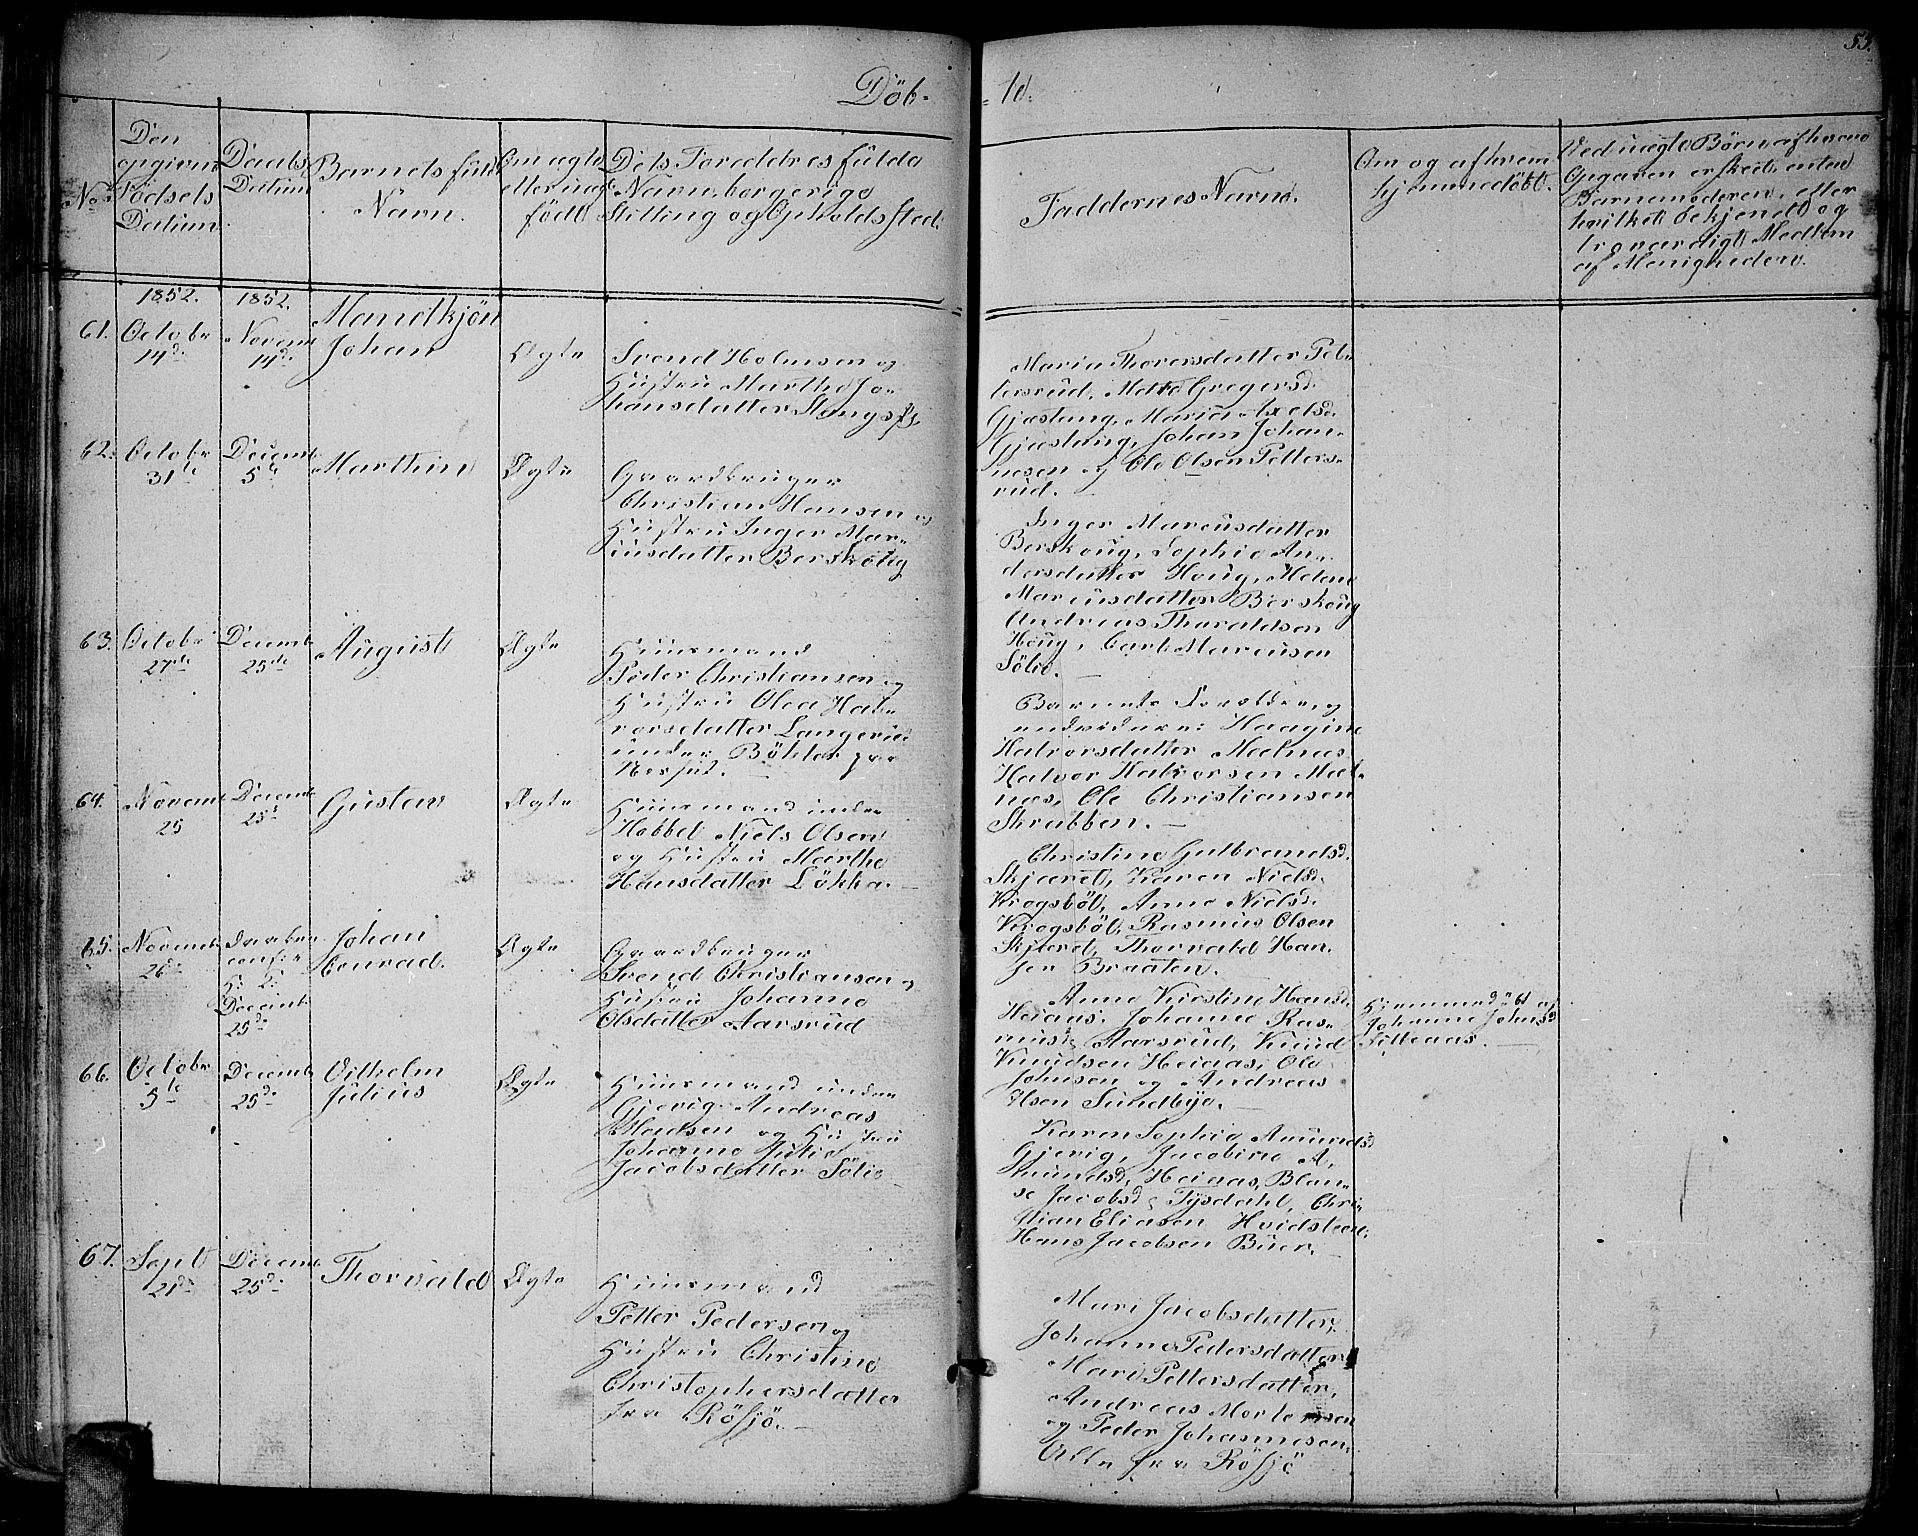 53.
Döb-
-te.
No
Den
opgivne
Födsels
Datum
Daabs
Datum
Barnets fulde
Navn.
Om ægte
eller uægt
född
Dets Forældres fulde
Navn, borgerlige
Stilling og Opholdssted.
Faddernes Navne.
Om og af hvem
hjemmedöbt.
Ved uægte Börn af hvem
Opgaven er skeet, enten
Barnemoderen, eller
hvilket bekjendt og
troværdigt Medlem
af Menigheden.
1852.
1852.
Mandkjön
61.
Octobr
14d.
Novem
14d.
Johan
Ægte
Svend Holmsen og
Hustru Marthe Jo-
hansdatter Stangsk.
Maria Thorersdatter Pet-
tersrud, Mette Gregersd.
Gjæstang, Maria Axelsd.
Gjæstang, Johan Johan-
nesen og Ole Olsen Petters-
rud.
62.
Octobr
31te
Decemb
5te
Marthin
Ægte
Gaardbruger
Christian Hansen og
Hustru Inger Mar-
cusdatter Berskoug
Inger Marcusdatter
Berskoug, Sophie An-
dersdatter Houg, Helene
Marcusdatter Berskoug
Andreas Thoraldsen
Houg, Carl Marcusen
Sölie.
63.
Octobr
27de
Decemb
25de
August
Ægte
Huusmand
Peder Christiansen og
Hustru Olea Hal-
vorsdatter Langerud
under Böhler paa
Nessut.
Barnets Forældre, og
endvidere: Haagine
Halvorsdatter Mælnæs
Halvor Halvorsen Mæl-
næs, Ole Christiansen
Skrabben.
64.
Novemb
25
Decemb
25d
Gustav
Ægte
Huusmand under
Hobbel Niels Olsen
og Hustru Marthe
Hansdatter Lökka.
Christine Gulbrandsd.
Skjæret, Karen Nielsd.
Krogsböl, Anne Nielsd.
Krogsböl, Rasmus Olsen
Skjæret, Thorvald Han-
sen Braaten.
65.
Novemb
26d
Daaben
conf: i
H: K:
Decemb
25d
Johan
Conrad.
Ægte
Gaardbruger
Svend Christiansen og
Hustru Johanne
Olsdatter Aarsrud
Anne Kirstine Hansd.
Heiaas, Johanne Ras-
musd. Aarsrud, Knud
Knudsen Heiaas, Ole
Johnsen og Andreas
Olsen Sundbye.
Hjemmedöbt af
Johanne Johnsd
66.
Octobr
5te
Decemb
25d
Vilhelm
Julius
Ægte
Huusmand under
Gjevig Andreas
Madsen og Hustru
Johanne Julie
Jacobsdatter Sölie
Karen Sophie Amundsd
Gjevig, Jacobine A-
mundsd. Heiaas, Blan-
se Jacobsd. Tysdahl, Chri-
stian Eliasen Hvidsteen,
Hans Jacobsen Buer.
67.
Sept
21d
Decemb
25d
Thorvald
Ægte
Huusmand
Petter Pedersen og
Hustru Christine
Christophersdatter
fra Rösjö.
Mari Jacobsdatter,
Johanne Pedersdatter
Mari Pettersdatter,
Andreas Mortensen
og Peder Johannesen,
Alle fra Rösjö